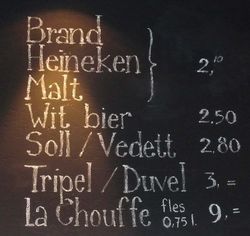 Brand
Heineken } 2,10
Malt
Wit bier 2.50
Soll / Vedett 2,80
Tripel / Duvel 3,=
la Chouffe fles 0,75 l. 9,=